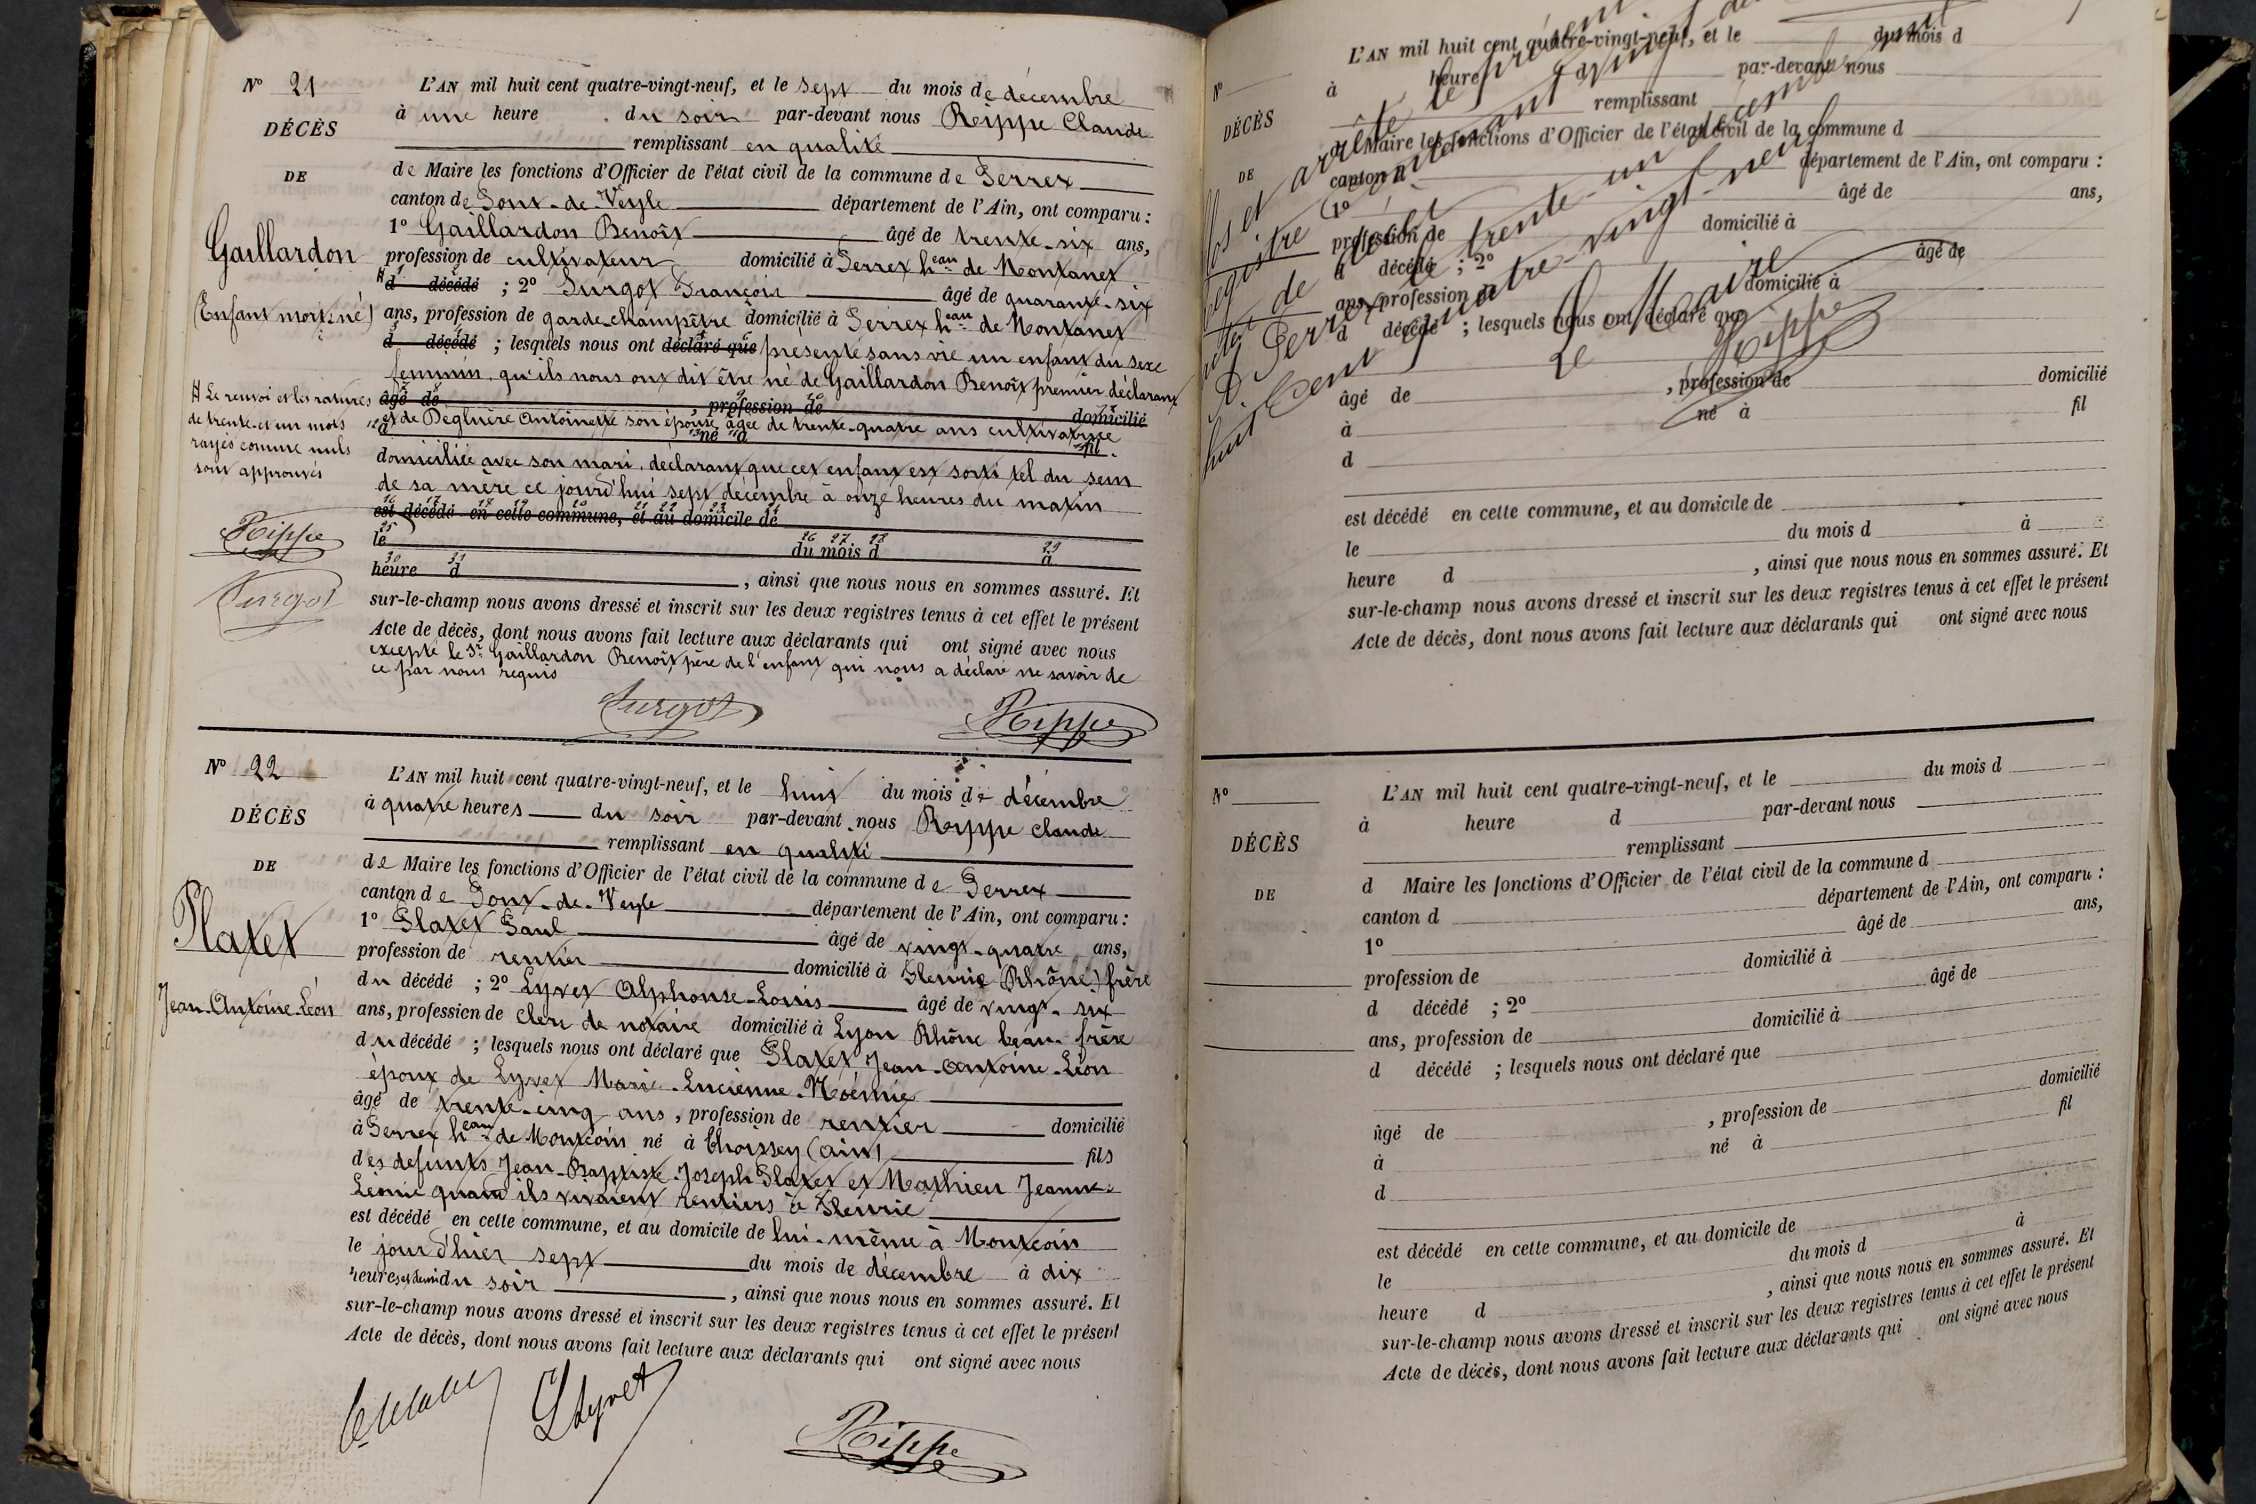 N° 21
DÉCÈS
DE
Gaillardon
(Enfant mort-né)
L'AN mil huit cent quatre-vingt-neuf, et le sept du mois de décembre
à une heure du soir par-devant nous Reyppe Claude
remplissant en qualité
de Maire les fonctions d'Officier de l'état civil de la commune de Perrex
canton de Pont-de-Veyle département de l'Ain, ont comparu :
1° Gaillardon Benoît âgé de trente-six ans,
profession de cultivateur domicilié à Perrex heau de Montanet
d décédé ; 2° Surgot François âgé de quarante-six
ans, profession de garde-champêtre domicilié à Perrex heau de Montanet
d décédé ; lesquels nous ont déclaré que présenté sans vie un enfant du sexe
féminin, qu'ils nous ont dit être né de Gaillardon Benoît premier déclarant
âgé de , profession de domicilié
et de Deglière Antoinette son épouse âgée de trente-quatre ans cultivatrice
à né à fil
domiciliée avec son mari, déclarant que cet enfant est sorti tel du sein
de sa mère ce jourd'hui sept décembre à onze heures du matin
est décédé en cette commune, et au domicile de
le du mois d à
heure d , ainsi que nous nous en sommes assuré. Et
sur-le-champ nous avons dressé et inscrit sur les deux registres tenus à cet effet le présent
Acte de décès, dont nous avons fait lecture aux déclarants qui ont signé avec nous
excepté le Sr Gaillardon Benoît père de l'enfant qui nous a déclaré ne savoir de
ce par nous requis
# Le renvoi et les ratures
de trente-et un mots
rayés comme nuls
sont approuvés
Rippe
Surgot
Surgot Rippe
N° 22
DÉCÈS
DE
Platet
Jean-Antoine-Léon
L'AN mil huit cent quatre-vingt-neuf, et le huit du mois de décembre
à quatre heures du soir par-devant nous Reyppe Claude
remplissant en qualité
de Maire les fonctions d'Officier de l'état civil de la commune de Perrex
canton de Pont-de-Veyle département de l'Ain, ont comparu :
1° Platet Paul âgé de vingt-quatre ans,
profession de rentier domicilié à Fleurie (Rhône) frère
du décédé ; 2° Lyvet Alphonse-Louis âgé de vingt-six
ans, profession de clerc de notaire domicilié à Lyon Rhône beau-frère
du décédé ; lesquels nous ont déclaré que Platet Jean-Antoine-Léon
époux de Lyvet Marie-Lucienne-Noémie
âgé de trente-cinq ans, profession de rentier domicilié
à Perrex heau de Montcoin né à Thoissey (ain) fils
des defunts Jean-Baptiste-Joseph Platet et Mathieu Jeanne-
Leonie quand ils vivaient rentiers à Fleurie
est décédé en cette commune, et au domicile de lui-même à Montcoin
le jour d'hier sept du mois de décembre à dix
heures et demi du soir , ainsi que nous nous en sommes assuré. Et
sur-le-champ nous avons dressé et inscrit sur les deux registres tenus à cet effet le présent
Acte de décès, dont nous avons fait lecture aux déclarants qui ont signé avec nous
Lyvet
Rippe
N°
DÉCÈS
DE
L'AN mil huit cent quatre-vingt-neuf, et le du mois d
à heure d par-devant nous
remplissant
d Maire les fonctions d'Officier de l'état civil de la commune d
canton d département de l'Ain, ont comparu :
1° âgé de ans,
profession de domicilié à
d décédé ; 2° âgé de
ans, profession de domicilié à
d décédé ; lesquels nous ont déclaré que
âgé de , profession de domicilié
à né à fil
d
est décédé en cette commune, et au domicile de
le du mois d à
heure d , ainsi que nous nous en sommes assuré. Et
sur-le-champ nous avons dressé et inscrit sur les deux registres tenus à cet effet le présent
Acte de décès, dont nous avons fait lecture aux déclarants qui ont signé avec nous
Clos et arrêté le présent
registre contenant vingt-deux
actes de décès
A Perrex le trente-un décembre mil
huit cent quatre-vingt-neuf
Le Maire
Rippe
N°
DÉCÈS
DE
L'AN mil huit cent quatre-vingt-neuf, et le du mois d
à heure d par-devant nous
remplissant
d Maire les fonctions d'Officier de l'état civil de la commune d
canton d département de l'Ain, ont comparu :
1° âgé de ans,
profession de domicilié à
d décédé ; 2° âgé de
ans, profession de domicilié à
d décédé ; lesquels nous ont déclaré que
âgé de , profession de domicilié
à né à fil
d
est décédé en cette commune, et au domicile de
le du mois d à
heure d , ainsi que nous nous en sommes assuré. Et
sur-le-champ nous avons dressé et inscrit sur les deux registres tenus à cet effet le présent
Acte de décès, dont nous avons fait lecture aux déclarants qui ont signé avec nous